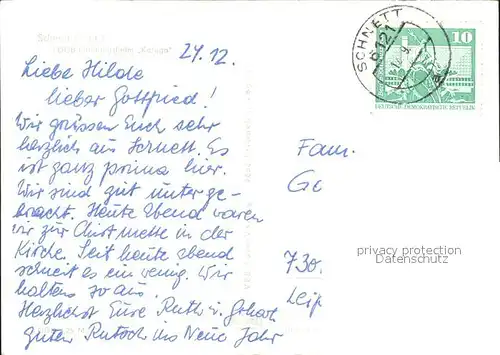 24.12.
Liebe Hilde
lieber Gottfried!
Wir grüssen Euch sehr
herzlich aus Schnett. Es
ist ganz prima hier.
Wir sind gut unterge-
bracht. Heute Abend waren
wir zur Christmette in der
Kirche. Seit heute abend
schneit es ein wenig. Wir
halten so aus.
Herzlichst Eure Ruth u.
guten Rutsch ins Neue Jahr
SCHNETT
6121
10
DEUTSCHE DEMOKRATISCHE REPUBLIK
Fam.
Ge
730
Leip
privacy protection
Datenschutz